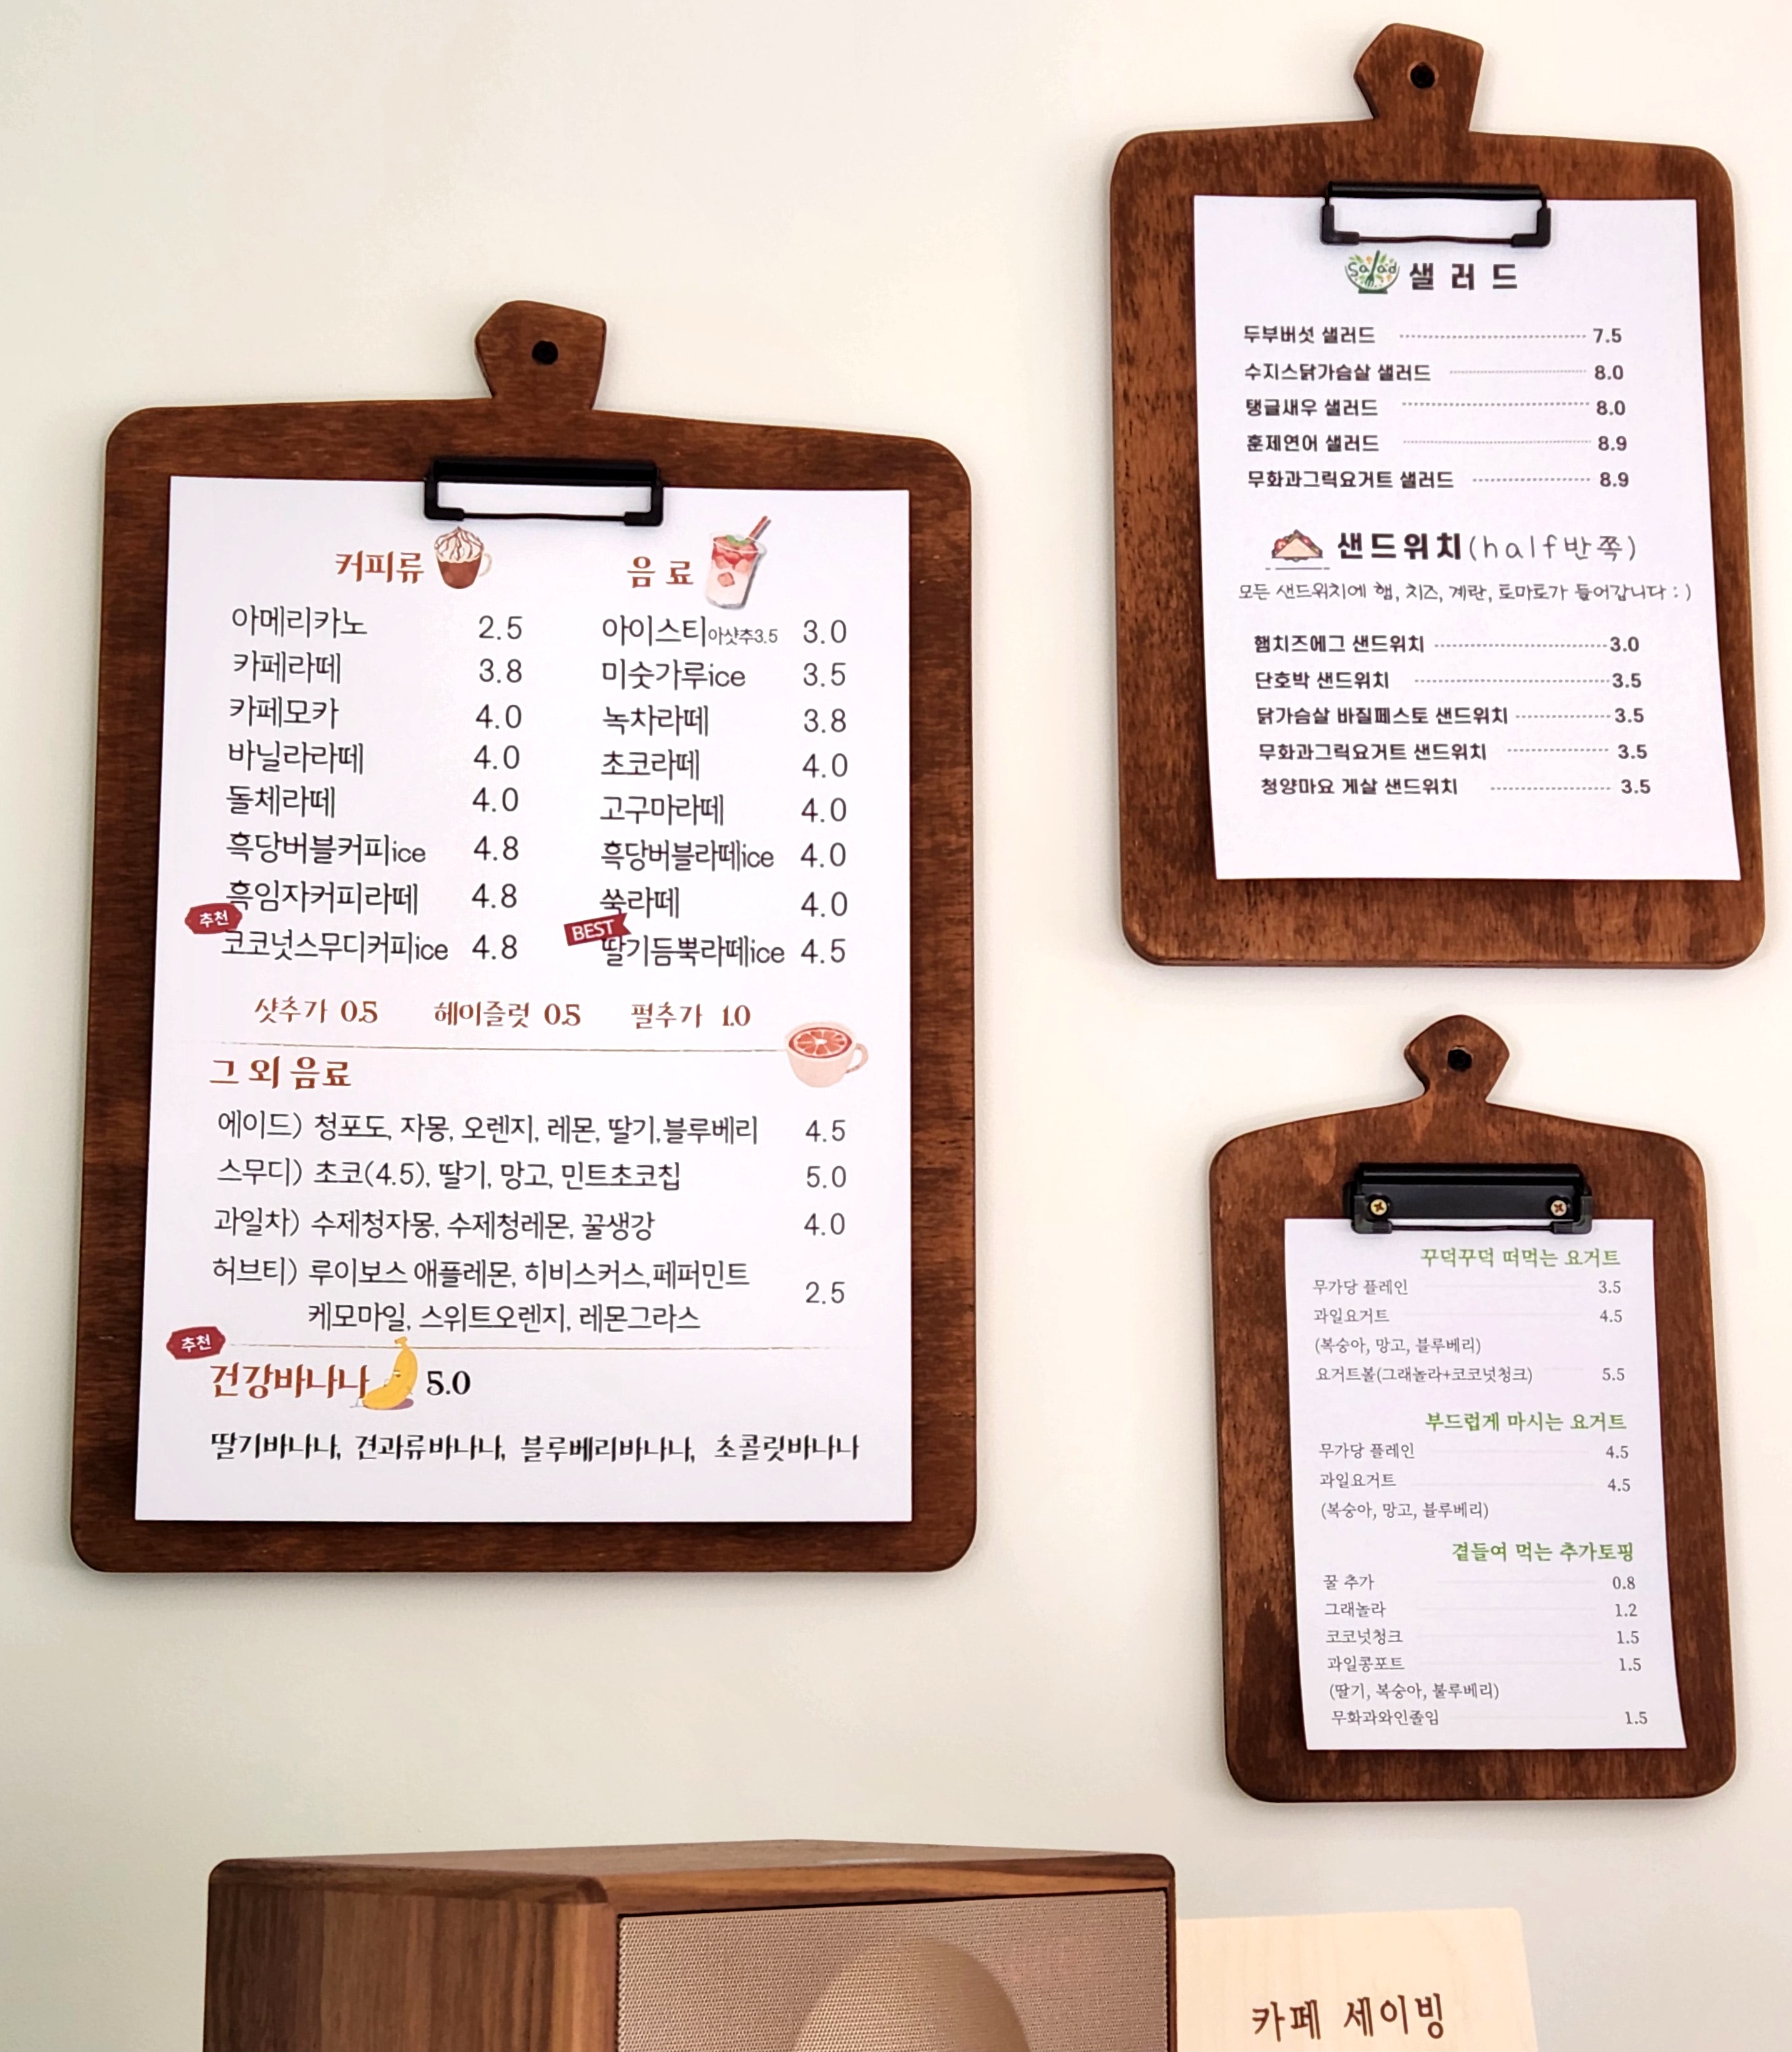 커피류
아메리카노 2.5
카페라떼 3.8
카페모카 4.0
바닐라라떼 4.0
돌체라떼 4.0
흑당버블커피ice 4.8
흑임자커피라떼 4.8
추천
코코넛스무디커피ice 4.8
음료
아이스티아샷추3.5 3.0
미숫가루ice 3.5
녹차라떼 3.8
초코라떼 4.0
고구마라떼 4.0
흑당버블라떼ice 4.0
쑥라떼 4.0
BEST
딸기듬뿍라떼ice 4.5
샷추가 0.5 헤이즐럿 0.5 펄추가 1.0
그 외 음료
에이드) 청포도, 자몽, 오렌지, 레몬, 딸기,블루베리 4.5
스무디) 초코(4.5), 딸기, 망고, 민트초코칩 5.0
과일차) 수제청자몽, 수제청레몬, 꿀생강 4.0
허브티) 루이보스 애플레몬, 히비스커스,페퍼민트
케모마일, 스위트오렌지, 레몬그라스 2.5
추천
건강바나나 5.0
딸기바나나, 견과류바나나, 블루베리바나나, 초콜릿바나나
Salad 샐러드
두부버섯 샐러드 7.5
수지스닭가슴살 샐러드 8.0
탱글새우 샐러드 8.0
훈제연어 샐러드 8.9
무화과그릭요거트 샐러드 8.9
샌드위치(half반쪽)
모든 샌드위치에 햄, 치즈, 계란, 토마토가 들어갑니다 : )
햄치즈에그 샌드위치 3.0
단호박 샌드위치 3.5
닭가슴살 바질페스토 샌드위치 3.5
무화과그릭요거트 샌드위치 3.5
청양마요 게살 샌드위치 3.5
꾸덕꾸덕 떠먹는 요거트
무가당 플레인 3.5
과일요거트 4.5
(복숭아, 망고, 블루베리)
요거트볼(그래놀라+코코넛청크) 5.5
부드럽게 마시는 요거트
무가당 플레인 4.5
과일요거트 4.5
(복숭아, 망고, 블루베리)
곁들여 먹는 추가토핑
꿀 추가 0.8
그래놀라 1.2
코코넛청크 1.5
과일콩포트 1.5
(딸기, 복숭아, 불루베리)
무화과와인졸임 1.5
카페 세이빙